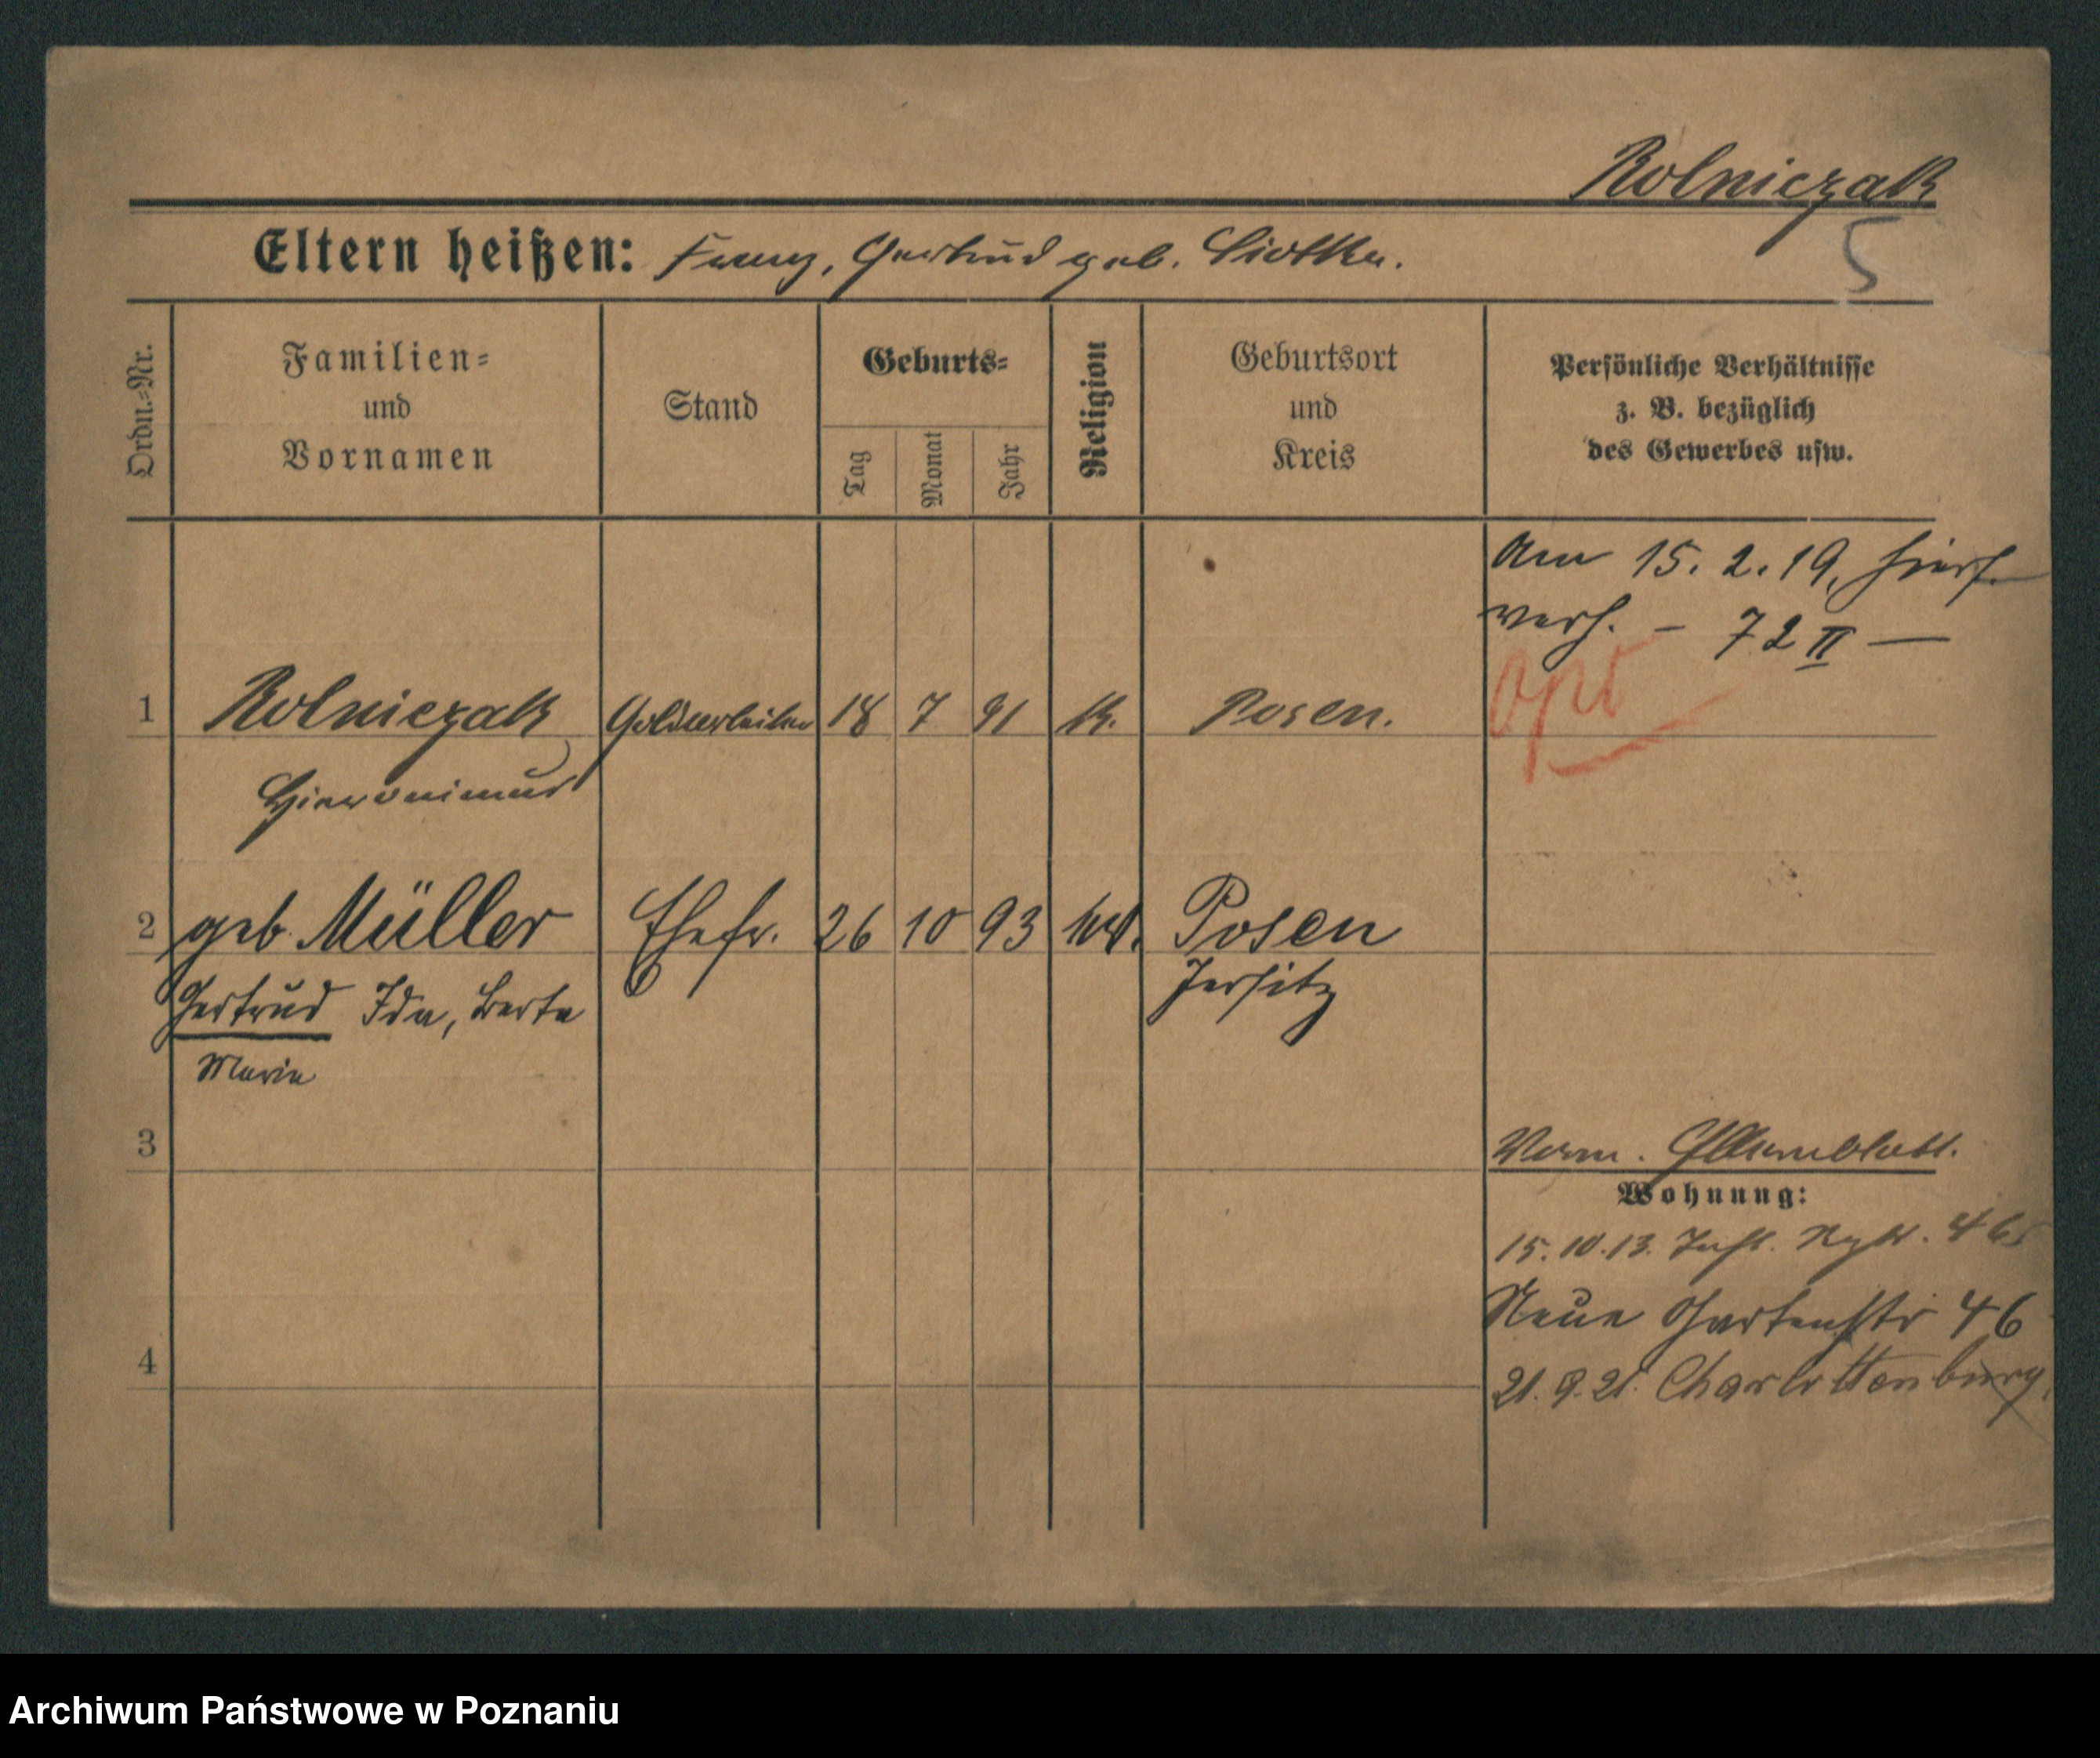 Rolniczak
5
Eltern heißen: Franz, Gertrud geb. Siotka.
Ordn.-Nr.
Familien-
und
Vornamen
Stand
Geburts-
Tag
Monat
Jahr
Religion
Geburtsort
und
Kreis
Persönliche Verhältnisse
z. B. bezüglich
des Gewerbes usw.
Am 15. 2. 19, hiers.
verh. – 72 II –
opt
1 Rolniczak Goldarbeiter 18 7 91 K. Posen.
Hieronimus
2 geb. Müller Ehefr. 26 10 93 Posen
Gertrud Ida, Berta Jersitz
Marie
3
Verm. Elternblatt.
Wohnung:
15. 10. 13. Inft. Rgt.
Neue Gartenstr 46
4
21. 9. 21. Charlottenburg.
Archiwum Państwowe w Poznaniu